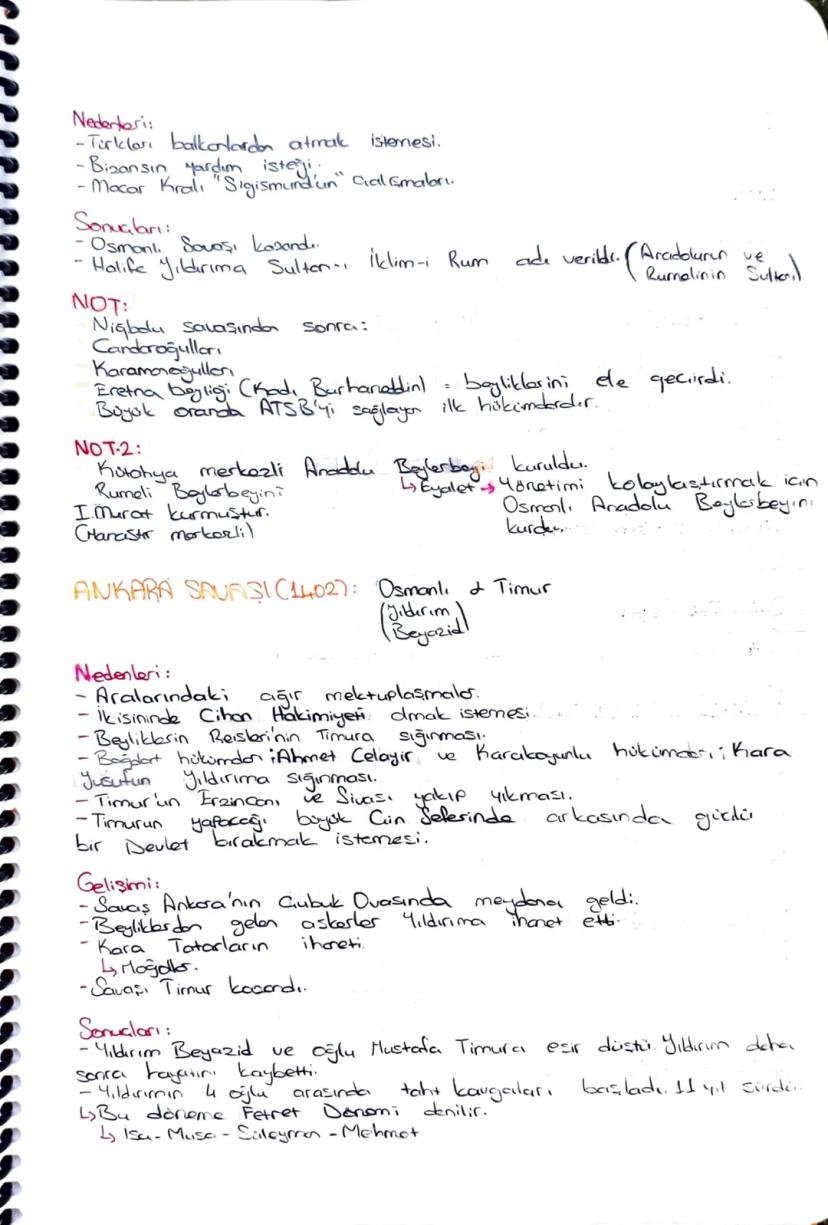 Nedenleri:
- Türkleri balkanlardan atmak istemesi.
- Bizansın yardım isteği.
- Macar Kralı "Sigismund'un" çalışmaları.
Sonuçları:
- Osmanlı Savaşı kazandı.
- Halife Yıldırıma Sultan-ı İklim-i Rum adı verildi. (Anadolunun ve
Rumelinin Sultanı)
NOT:
Niğbolu savaşından sonra:
Candaroğulları
Karamanoğulları
Eretna beyliği (Kadı Burhaneddin) = beyliklerini ele geçirdi.
Büyük oranda ATSB'yi sağlayan ilk hükümdardır.
NOT-2:
Kütahya merkezli Anadolu Beylerbeyi kuruldu.
Rumeli Beylerbeyini ↳ Eyalet → Yönetimi kolaylaştırmak için
I. Murat kurmuştur. Osmanlı Anadolu Beylerbeyini
(Manastır merkezli) kurdu.
ANKARA SAVAŞI (1402): Osmanlı & Timur
(Yıldırım
Beyazid)
Nedenleri:
- Aralarındaki ağır mektuplaşmalar.
- İkisininde Cihan Hakimiyeti olmak istemesi.
- Beyliklerin Reisleri'nin Timura sığınması.
- Bağdat hükümdarı; Ahmet Celayir ve Karakoyunlu hükümdarı; Kara
Yusufun Yıldırıma sığınması.
- Timur'un Erzincanı ve Sivası yakıp yıkması.
- Timurun yapacağı büyük Çin Seferinde arkasında güçlü
bir Devlet bırakmak istemesi.
Gelişimi:
- Savaş Ankara'nın Çubuk Ovasında meydana geldi.
- Beyliklerden gelen askerler Yıldırıma ihanet etti.
- Kara Tatarların ihaneti.
↳ Moğollar.
- Savaşı Timur kazandı.
Sonuçları:
- Yıldırım Beyazid ve oğlu Mustafa Timura esir düştü. Yıldırım daha
sonra hayatını kaybetti.
- Yıldırımın 4 oğlu arasında taht kavgaları başladı. 11 yıl sürdü.
↳ Bu döneme Fetret Dönemi denilir.
↳ İsa - Musa - Süleyman - Mehmet